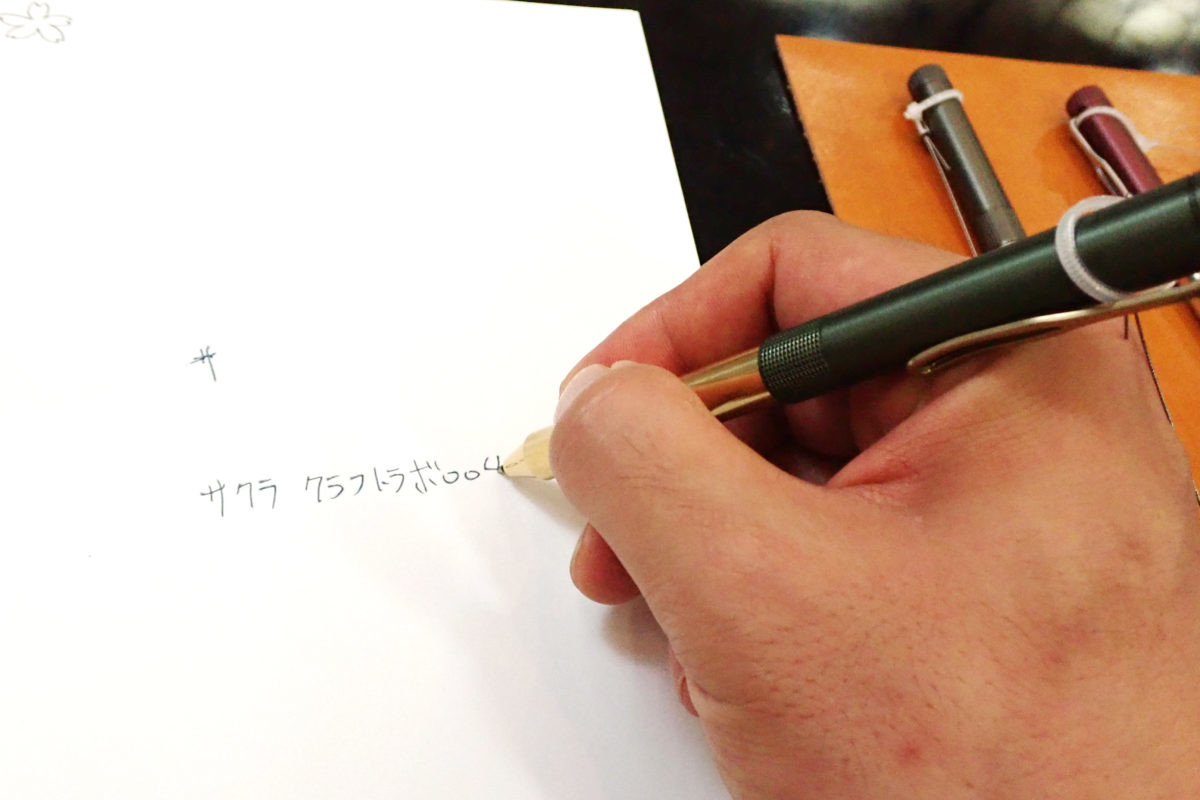 サ
サクラ クラフトラボ004